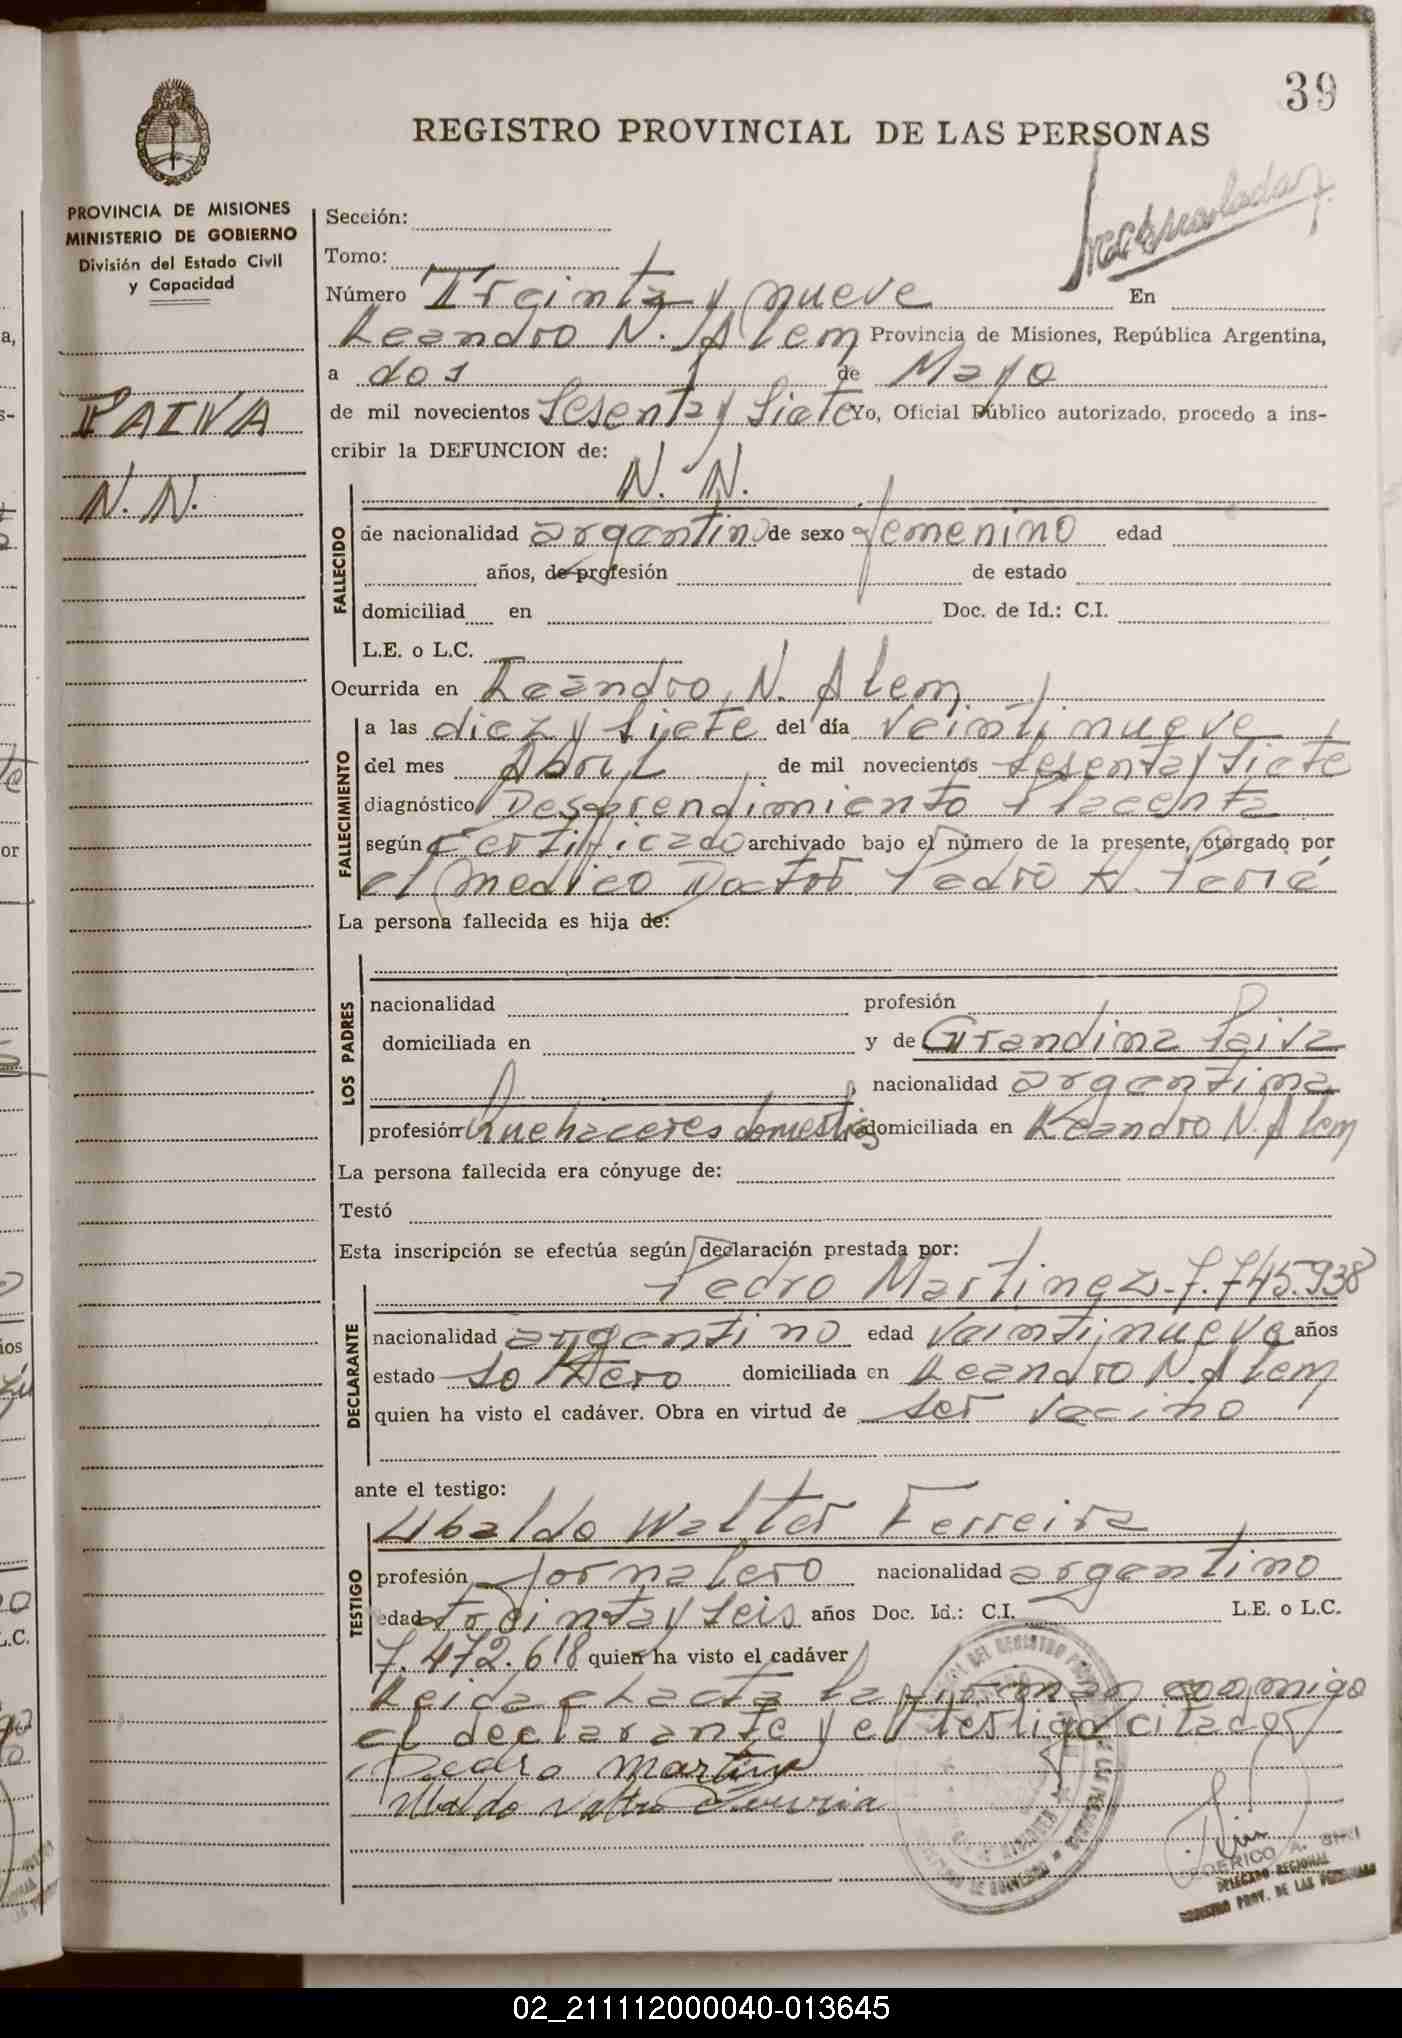 39
REGISTRO PROVINCIAL DE LAS PERSONAS
PROVINCIA DE MISIONES
MINISTERIO DE GOBIERNO
División del Estado Civil
y Capacidad
PAIVA
N. N.
Sección:
Tomo:
Número Treinta y nueve En
Leandro N. Alem Provincia de Misiones, República Argentina,
a dos de Mayo
de mil novecientos Sesenta y Siete Yo, Oficial Público autorizado, procedo a ins-
cribir la DEFUNCION de:
N. N.
FALLECIDO
de nacionalidad argentino de sexo femenino edad
años, de profesión de estado
domiciliad en Doc. de Id.: C.I.
L.E. o L.C.
Ocurrida en Leandro N. Alem
FALLECIMIENTO
a las diez y siete del día veintinueve
del mes Abril de mil novecientos Sesenta y Siete
diagnóstico Desprendimiento Placenta
según certificado archivado bajo el número de la presente, otorgado por
el medico Doctor Pedro A. Perié
La persona fallecida es hija de:
LOS PADRES
nacionalidad profesión
domiciliada en y de Grandina Paiva
nacionalidad argentina
profesión Quehaceres domesticos domiciliada en Leandro N. Alem
La persona fallecida era cónyuge de:
Testó
Esta inscripción se efectúa según declaración prestada por:
Pedro Martinez-7.745.938
DECLARANTE
nacionalidad argentino edad Veintinueve años
estado soltero domiciliada en Leandro N. Alem
quien ha visto el cadáver. Obra en virtud de ser vecino
ante el testigo:
Ubaldo Walter Ferreira
TESTIGO
profesión jornalero nacionalidad argentino
edad treinta y seis años Doc. Id.: C.I. L.E. o L.C.
7.472.618 quien ha visto el cadáver
Leida el acta la firman conmigo
el declarante y el testigo citados
Pedro Martinez
Ubaldo Walter Ferreira
FEDERICO A.
DELEGADO REGIONAL
REGISTRO PROV. DE LAS PERSONAS
02_211112000040-013645